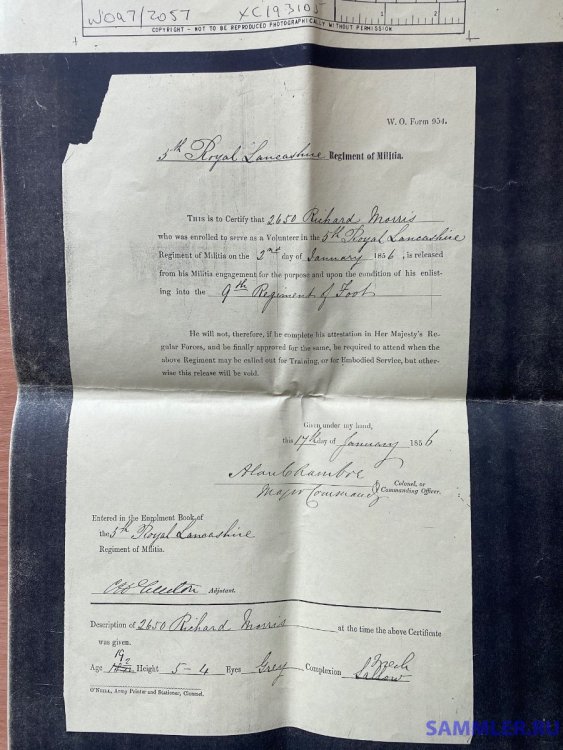 WO97/2057 XC193105
COPYRIGHT - NOT TO BE REPRODUCED PHOTOGRAPHICALLY WITHOUT PERMISSION
1 2
W. O. Form 954.
5th Royal Lancashire Regiment of Militia.
THIS is to Certify that 2650 Richard Morris
who was enrolled to serve as a Volunteer in the 5th Royal Lancashire
Regiment of Militia on the 2nd day of January 1856, is released
from his Militia engagement for the purpose and upon the condition of his enlist-
ing into the 9th Regiment of Foot
He will not, therefore, if he complete his attestation in Her Majesty's Re-
gular Forces, and be finally approved for the same, be required to attend when the
above Regiment may be called out for Training, or for Embodied Service, but other-
wise this release will be void.
Given under my hand,
this 17th day of January 1856
Colonel, or
Major Commandg Commanding Officer.
Entered in the Enrolment Book, of
the 5th Royal Lancashire
Regiment of Militia.
Adjutant.
Description of 2650 Richard Morris at the time the above Certificate
was given.
Age Height 5-4 Eyes Grey Complexion Fresh
Sallow
O'NEILL, Army Printer and Stationer, Clonmel.
SAMMLER.RU